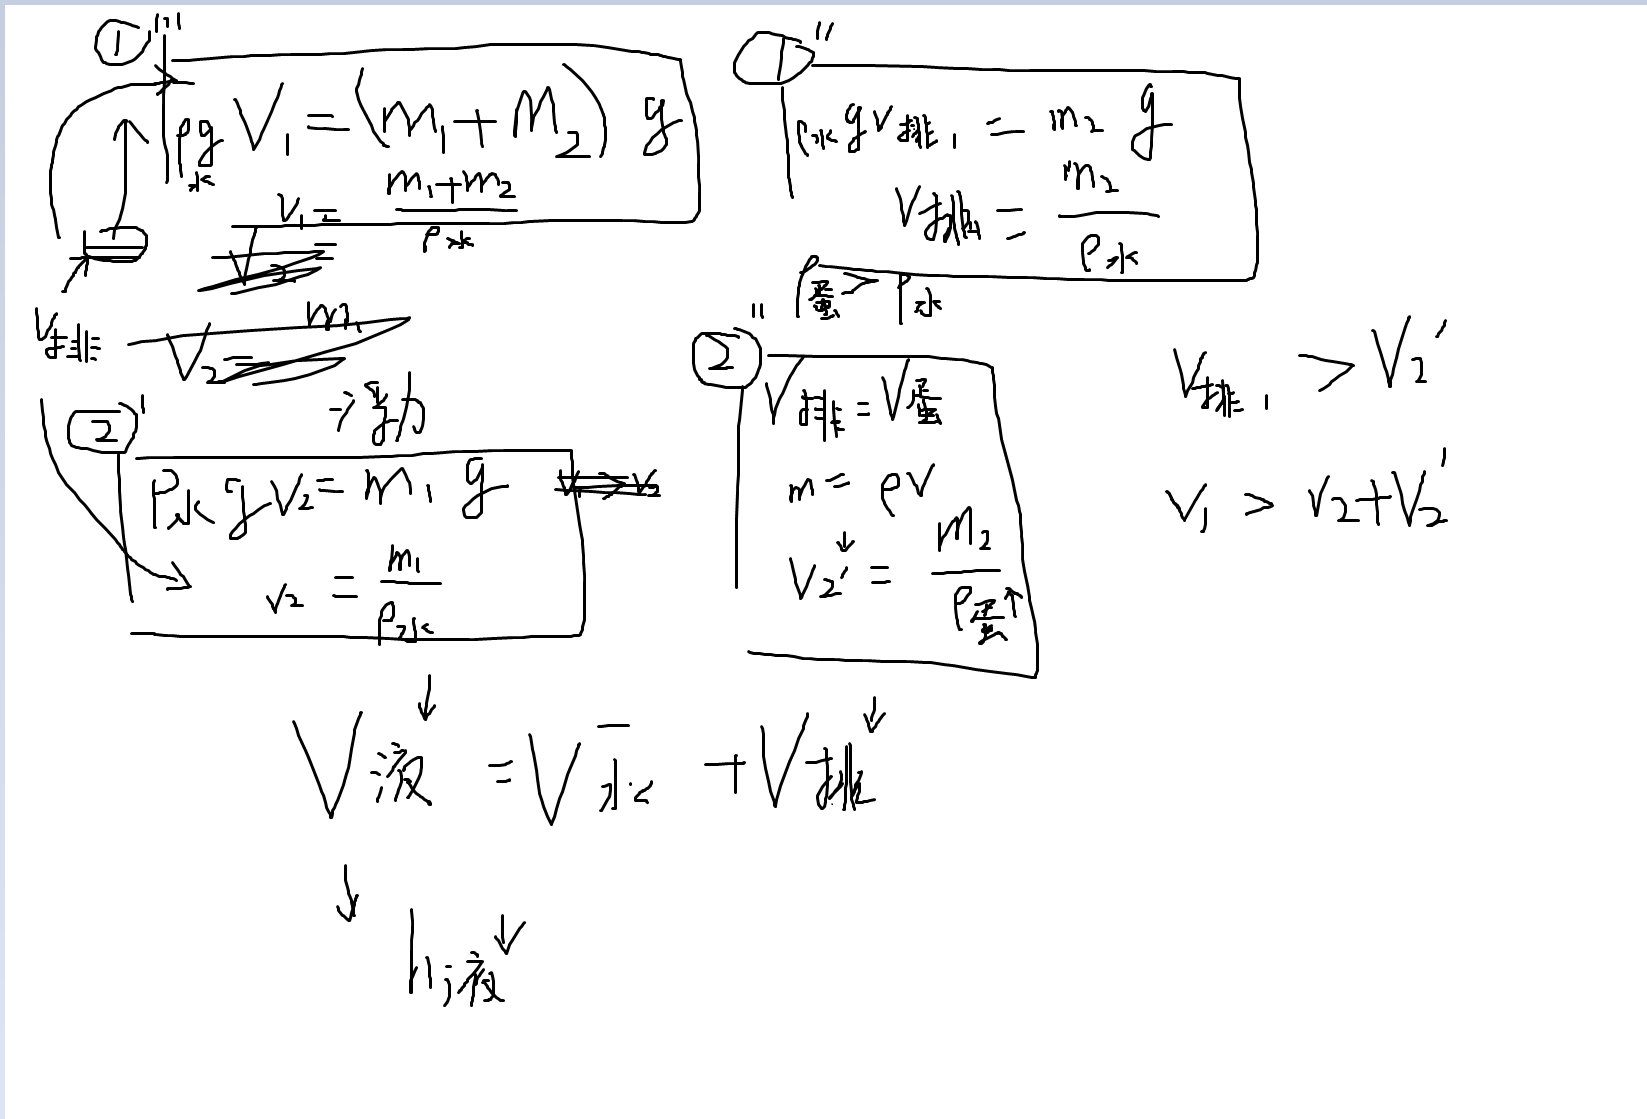 ①'''
ρ水gV₁=(m₁+M₂)g
V₁=(m₁+m₂)/ρ水
V₂=
V排
m₁
V₂=
→浮力
②'
ρ水gV₂=m₁g
V₁>V₂
V₂=m₁/ρ水
①''
ρ水gV排₁=m₂g
V排₁=m₂/ρ水
ρ蛋>ρ水
②''
V排=V蛋
m=ρV
V₂'↓=m₂/ρ蛋↑
V排₁>V₂'
V₁>V₂+V₂'
↓
V液=V水+V排↓
↓
h液↓